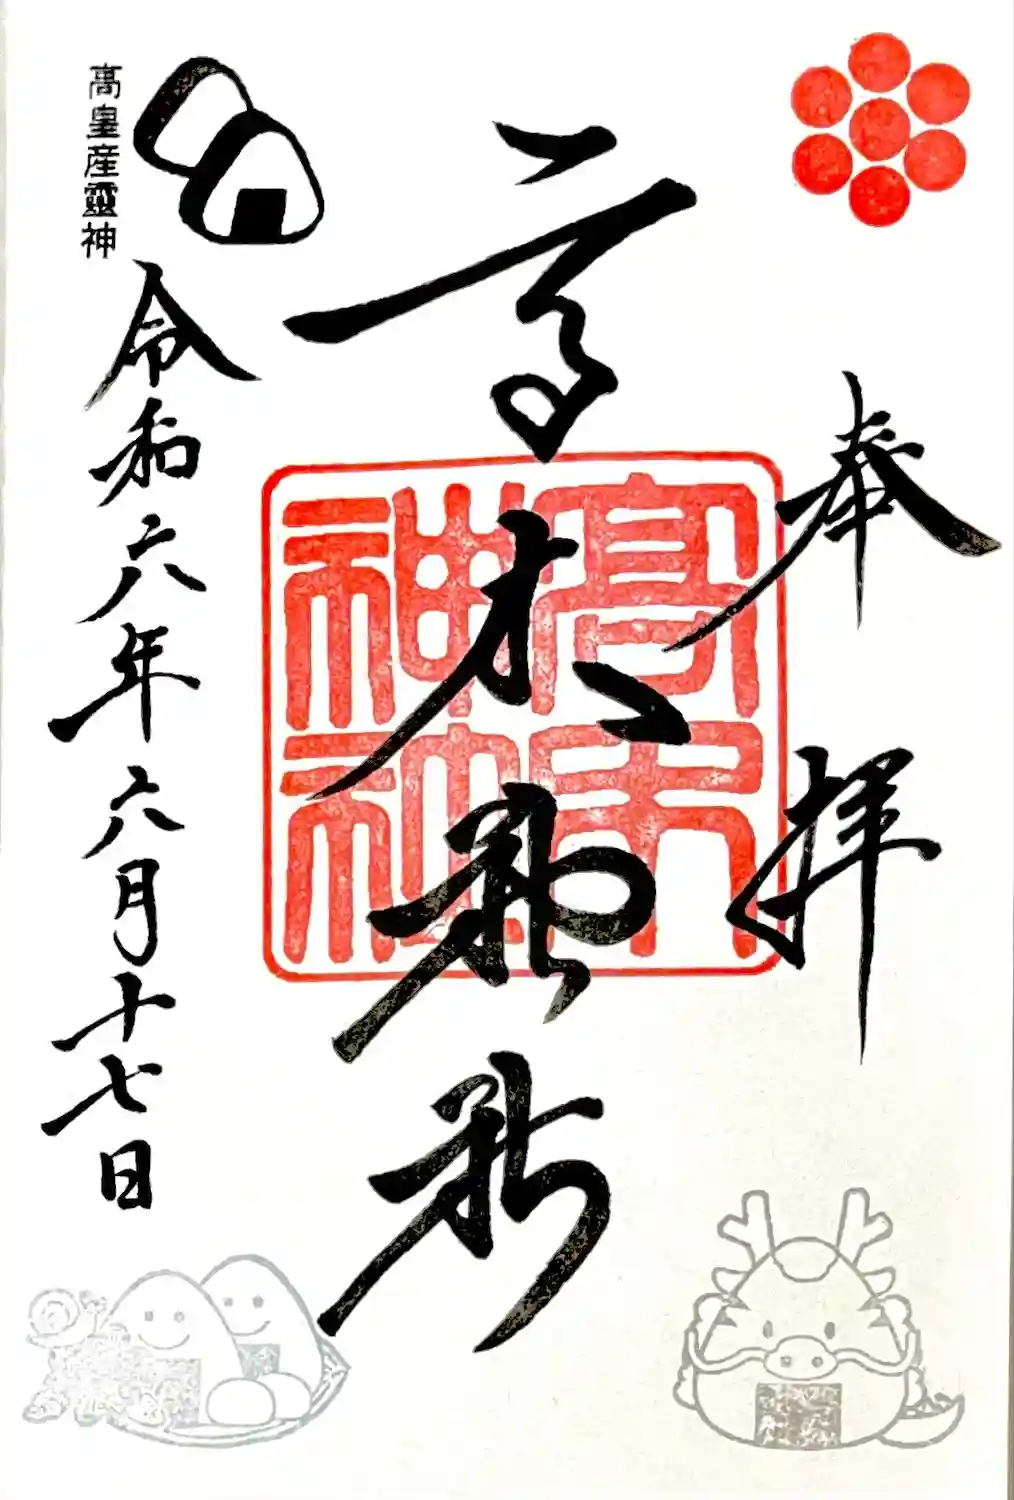 奉拝
高木神社
高木神社
高皇産靈神
令和六年六月十七日